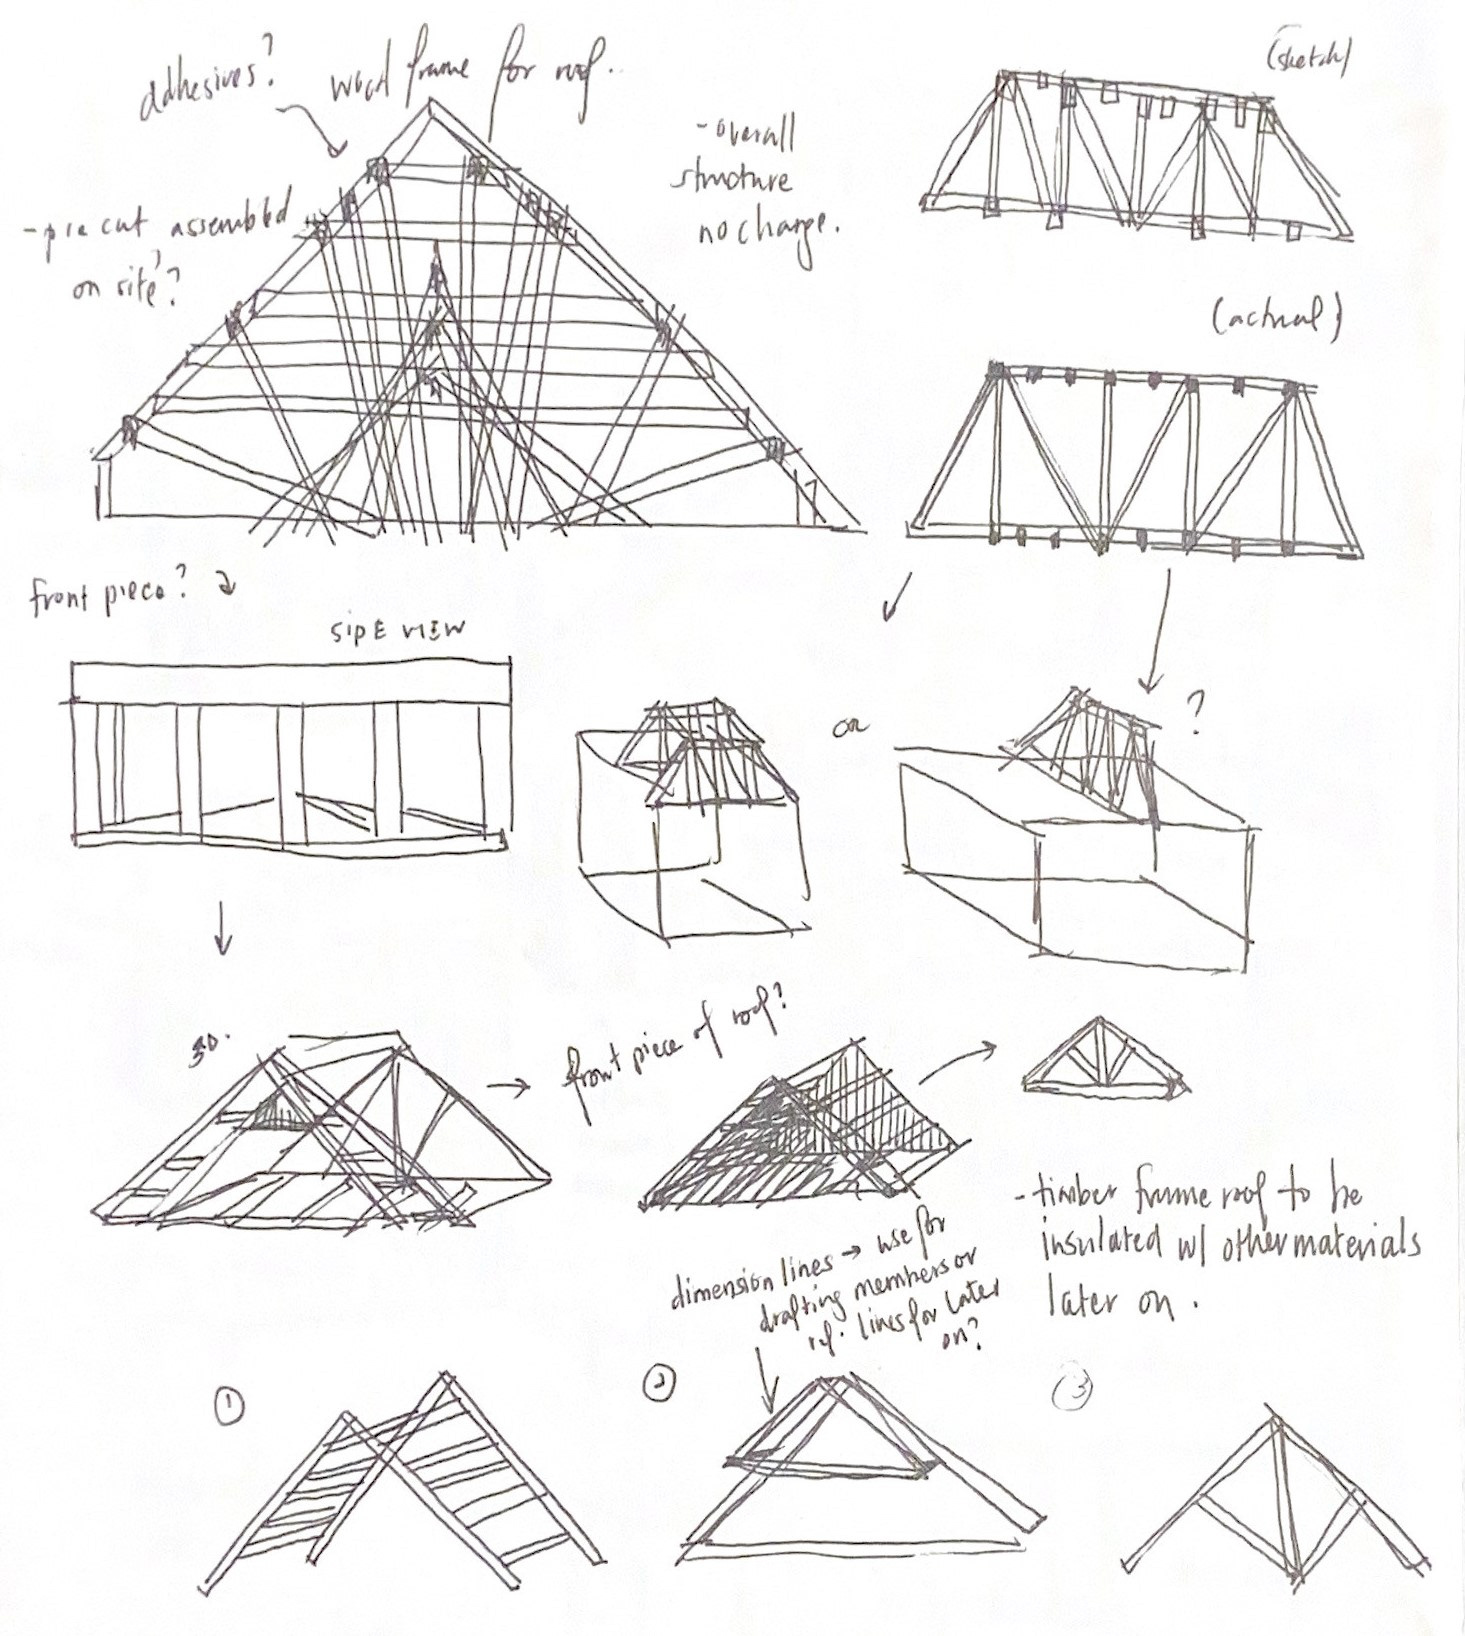 adhesives?
wood frame for roof..
(sketch)
- overall
structure
no change.
- pre cut, assembled
on site?
(actual)
front piece?
SIDE VIEW
or
?
3D.
front piece of roof?
- timber frame roof to be
insulated w/ other materials
later on.
dimension lines → use for
drafting members or
ref. lines for later
on?
①
②
③